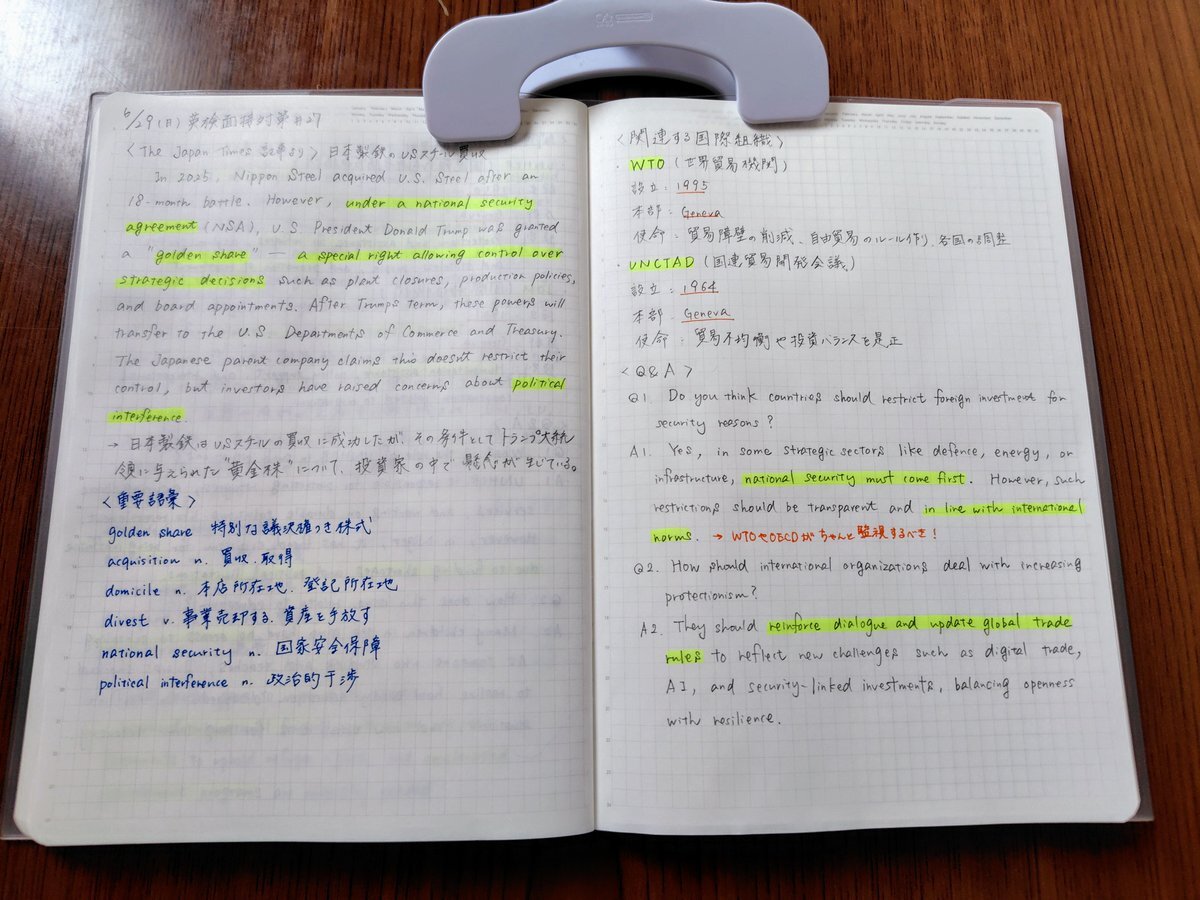 6/29(日) 英検面接対策 #27
<The Japan Times 記事より> 日本製鉄のUSスチール買収
In 2025, Nippon Steel acquired U.S. Steel after an
18-month battle. However, under a national security
agreement (NSA), U.S. President Donald Trump was granted
a "golden share" — a special right allowing control over
strategic decisions such as plant closures, production policies,
and board appointments. After Trump's term, these powers will
transfer to the U.S. Departments of Commerce and Treasury.
The Japanese parent company claims this doesn't restrict their
control, but investors have raised concerns about political
interference.
→ 日本製鉄はUSスチールの買収に成功したが、その条件としてトランプ大統
領に与えられた"黄金株"について、投資家の中で懸念が生じている。
<重要語彙>
golden share 特別な議決権つき株式
acquisition n. 買収、取得
domicile n. 本店所在地、登記所在地
divest v. 事業売却する、資産を手放す
national security n. 国家安全保障
political interference n. 政治的干渉
<関連する国際組織>
・WTO (世界貿易機関)
設立: 1995
本部: Geneva
使命: 貿易障壁の削減、自由貿易のルール作り、各国の調整
・UNCTAD (国連貿易開発会議)
設立: 1964
本部: Geneva
使命: 貿易不均衡や投資バランスを是正
<Q&A>
Q1. Do you think countries should restrict foreign investment for
security reasons?
A1. Yes, in some strategic sectors like defence, energy, or
infrastructure, national security must come first. However, such
restrictions should be transparent and in line with international
norms. → WTOやOECDがちゃんと監視するべき!
Q2. How should international organizations deal with increasing
protectionism?
A2. They should reinforce dialogue and update global trade
rules to reflect new challenges such as digital trade,
AI, and security-linked investments, balancing openness
with resilience.